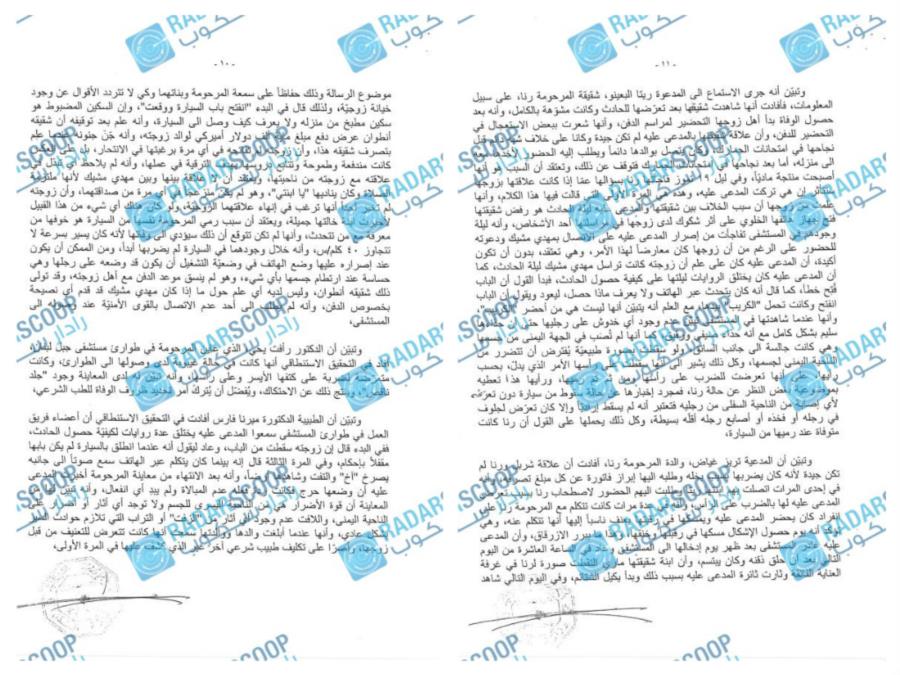 - ١٠ -
موضوع الرسالة وذلك حفاظاً على سمعة المرحومة وبناتهما وكي لا تتردد الأقوال عن وجود
خيانة زوجيّة، ولذلك قال في البدء "انفتح باب السيارة ووقعت"، وإن السكين المضبوط هو
سكين مطبخ من منزله ولا يعرف كيف وصل الى السيارة، وأنه علم بعد توقيفه أن شقيقه
أنطوان عرض دفع مبلغ دولار أميركي لوالد زوجته، وأنه جُنّ جنونه عندما علم
بتصرف شقيقه هذا، وأن زوجته في أي مرة برغبتها في الانتحار، بل على العكس
كانت مندفعة وطموحة الترقية في عملها، وأنه لم يلاحظ أي تبدّل في
علاقته مع زوجته من ناحيتها، ويعتقد أن لا علاقة بينها وبين مهدي مشيك لأنها ملتزمة
وكان يناديها "يا ابنتي"، وهو لم يكن منزعجاً في أي مرة من صداقتهما، وأن زوجته
أنها ترغب في إنهاء علاقتهما الزوجيّة، ولو كان هناك أي شيء من هذا القبيل
خالتها جميلة، ويعتقد أن سبب رمي المرحومة نفسها من السيارة هو خوفها من
معرفة مع من تتحدث، وأنها لم تكن تتوقع أن ذلك سيؤدي الى وفاتها لأنه كان يسير بسرعة لا
تتجاوز ٤٠ كلم/س، وأنه خلال وجودهما في السيارة لم يضربها أبداً، ومن الممكن أن يكون
عند إصراره عليها وضع الهاتف في وضعيّة التشغيل أن يكون قد وضعه على رجلها وهي
حساسة عند ارتطام جسمها بأي شيء، وهو لم ينسق موعد الدفن مع أهل زوجته، وقد تولى
ذلك شقيقه أنطوان، وليس لديه أي علم حول ما إذا كان مهدي مشيك قد قدم أي نصيحة
بخصوص الدفن، وأنه لم يطلب الى أحد عدم الاتصال بالقوى الأمنيّة عند وصوله الى
المستشفى،
وتبيّن أن الدكتور رأفت يحيى الذي عاين المرحومة في طوارئ مستشفى جبل لبنان،
أفاد في التحقيق الاستنطاقي أنها كانت في حالة غيبوبة لدى وصولها الى الطوارئ، وكانت
ضربة على كتفها الأيسر وعلى رأسها، وأنه لدى المعاينة وجود "جلد
ناقص"، وينتج ذلك عن الاحتكاك، ويُفضّل أن يُترك أمر تحديد ظروف الوفاة للطب الشرعي،
وتبيّن أن الطبيبة الدكتورة ميرنا فارس أفادت في التحقيق الاستنطاقي أن أعضاء فريق
العمل في طوارئ المستشفى سمعوا المدعى عليه يختلق عدة روايات لكيفيّة حصول الحادث،
ففي البدء قال إن زوجته سقطت من الباب، وعاد ليقول أنه عندما انطلق بالسيارة لم يكن بابها
مقفلاً بإحكام، وفي المرة الثالثة قال إنه بينما كان يتكلم عبر الهاتف سمع صوتاً الى جانبه
يصرخ "أخ" والتفت وشاهدها أرضاً، وأنه بعد الانتهاء من معاينة المرحومة
عليه أن وضعها حرج فكانت ردة فعله عدم المبالاة ولم يبدِ أي انفعال، وأنه تبيّن
المعاينة أن قوة الأضرار الناحية اليسرى للجسم ولا توجد أي آثار أو على
الناحية اليمنى، واللافت عدم وجود أي آثار "الزفت" أو التراب التي تلازم حوادث السير
عادي، وأنها عندما أبلغت والدها ووالدتها كانت تتعرض للتعنيف من قبل
زوجها، وأصرّا على تكليف طبيب شرعي آخر غير الذي كشف عليها في المرة الأولى،
- ١١ -
وتبيّن أنه جرى الاستماع الى المدعوة ريتا البعينو، شقيقة المرحومة رنا، على سبيل
المعلومات، فأفادت أنها شاهدت شقيقتها بعد تعرّضها للحادث وكانت مشوّهة بالكامل، وأنه بعد
حصول الوفاة بدأ أهل زوجها التحضير لمراسم الدفن، وأنها شعرت ببعض الاستعجال في
التحضير للدفن، وأن علاقة شقيقتها بالمدعى عليه لم تكن جيدة وكانا على خلاف شبه قبل
نجاحها في امتحانات الجمارك، وكان يتصل بوالدها دائماً ويطلب إليه الحضور لأخذها معه
الى منزله، أما بعد نجاحها في امتحانات الجمارك فتوقف عن ذلك، وتعتقد أن السبب هو أنها
أصبحت منتجة مادياً، وفي ليل ٩ تموز فاجأت رنا بسؤالها عمّا إذا كانت علاقتها بزوجها
ستتأثر إن هي تركت المدعى عليه، وهذه هي المرة الأولى التي قالت فيها هذا الكلام، وأنها
علمت من زوجها أن سبب الخلاف بين شقيقتها والمدعى عليه ليلة الحادث هو رفض شقيقتها
فتح جهاز هاتفها الخلوي على أثر شكوك لدى زوجها في أحد الأشخاص، وأنه ليلة
وجودهم في المستشفى تفاجأت من إصرار المدعى عليه على الاتصال بمهدي مشيك ودعوته
للحضور على الرغم من أن زوجها كان معارضاً لهذا الأمر، وهي تعتقد، بدون أن تكون
أكيدة، أن المدعى عليه كان على علم أن زوجته كانت تراسل مهدي مشيك ليلة الحادث، كما
أن المدعى عليه كان يختلق الروايات ليلتها على كيفية حصول الحادث، فبدأ القول أن الباب
فُتح خطأً، كما قال إنه كان يتحدث عبر الهاتف ولا يعرف ماذا حصل، ليعود ويقول أن الباب
انفتح وكانت تحمل "الكريب" مع العلم أنه يتبيّن أنها ليست هي من أحضر
وأنها عندما شاهدتها في المستشفى عدم وجود أي خدوش على رجليها حتى أن حذاءها
سليم بشكل كامل مع أنه حذاء صيفي ورقيق، كما أنها لم تُصب في الجهة اليمنى من جسمها
وهي كانت جالسة الى جانب السائق، ولو سقطت بصورة طبيعيّة يُفترض أن تتضرر من
الناحية اليمنى لجسمها، وكل ذلك يشير الى أنها سقطت على رأسها الأمر الذي يدل، بحسب
رأيها، على أنها تعرضت للضرب على رأسها ومن ثم رميها، ورأيها هذا تعطيه
بموضوعية بغض النظر عن حالة رنا، فمجرد إخبارها عن حالة سقوط من سيارة دون تعرّض
لأي إصابة من الناحية السفلى من رجليه فتعتبر أنه لم يسقط إرادياً وإلا كان تعرّض لجلوف
في رجله أو فخذه أو أصابع رجله أقله بسيطة، وكل ذلك يحملها على القول أن رنا كانت
متوفاة عند رميها من السيارة،
وتبيّن أن المدعية تريز غياض، والدة المرحومة رنا، أفادت أن علاقة شربل ورنا لم
تكن جيدة لأنه كان يضربها بسبب بخله وطلبه إليها إبراز فاتورة عن كل مبلغ تصرفه، وأنه
في إحدى المرات اتصلت بها رنا وطلبت اليهم الحضور لاصطحاب رنا بسبب تعرّض
المدعى عليه لها بالضرب على رأسها، وأنه لعدة مرات كانت تتكلم مع المرحومة رنا على
انفراد كان يحضر المدعى عليه ويمسكها في رقبتها ناسباً إليها أنها تتكلم عنه، وهي
وأنه يوم حصول الإشكال مسكها في رقبتها الازرقاق، وأن المدعى
عليه غادر المستشفى بعد ظهر يوم إدخالها الى المستشفى وعاد في الساعة العاشرة من اليوم
التالي بعد أن حلق ذقنه وكان يبتسم، وأن ابنة شقيقتها التقطت صورة لرنا في غرفة
العناية الفائقة وثارت ثائرة المدعى عليه بسبب ذلك وبدأ يكيل الشتائم، وفي اليوم التالي شاهد
RADARSCOOP
رادار سكوب